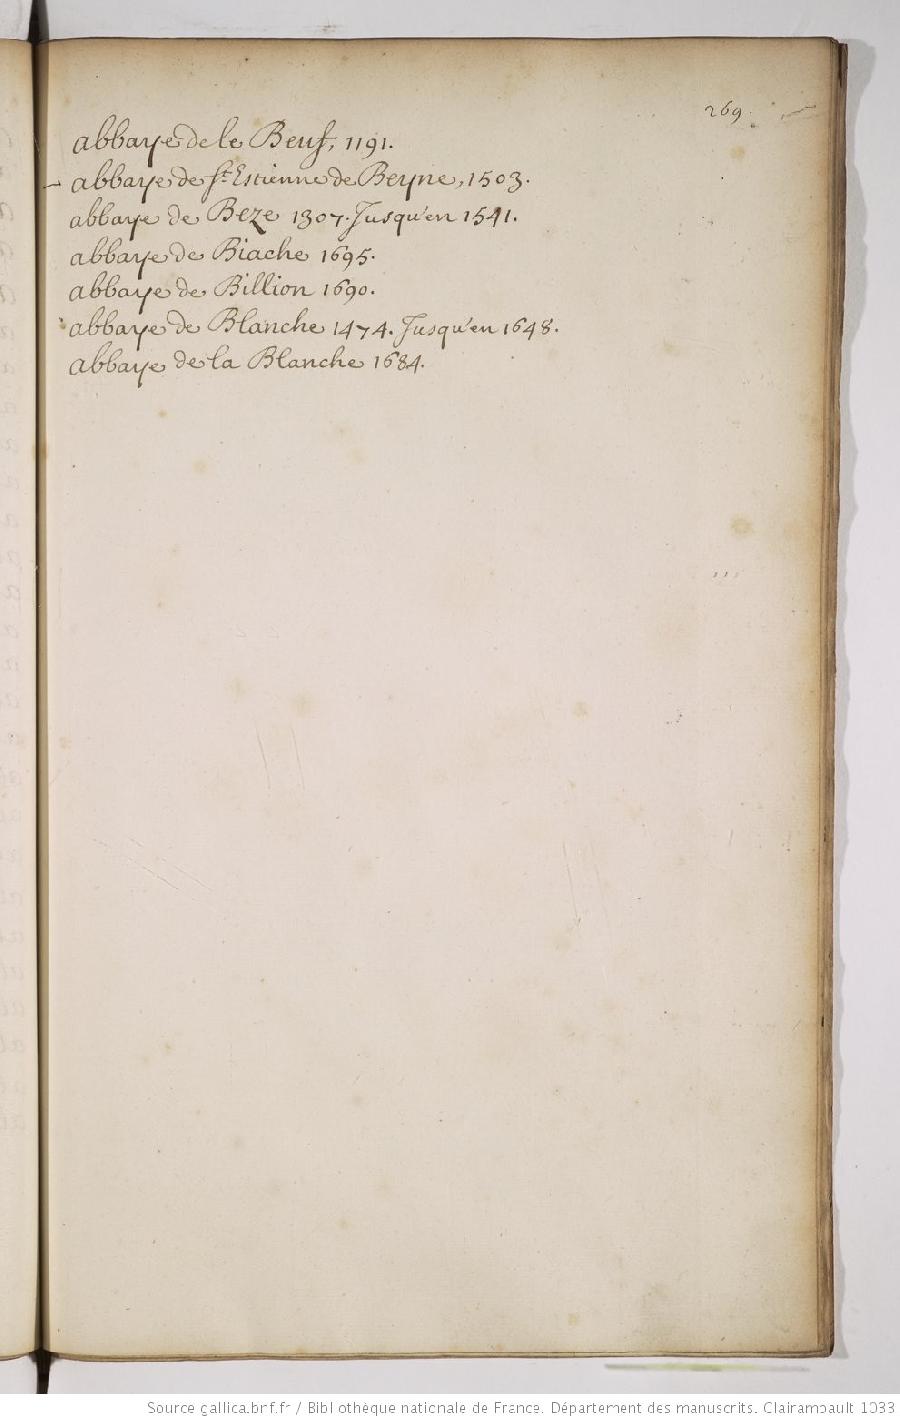 269
abbaye de le Beuf, 1191.
abbaye de St Estienne de Beyne, 1503.
abbaye de Beze 1307. Jusqu'en 1541.
abbaye de Biache 1695.
abbaye de Billion 1690.
abbaye de Blanche 1474. Jusqu'en 1648.
abbaye de la Blanche 1684.
Source gallica.bnf.fr / Bibliothèque nationale de France. Département des manuscrits. Clairambault 1033